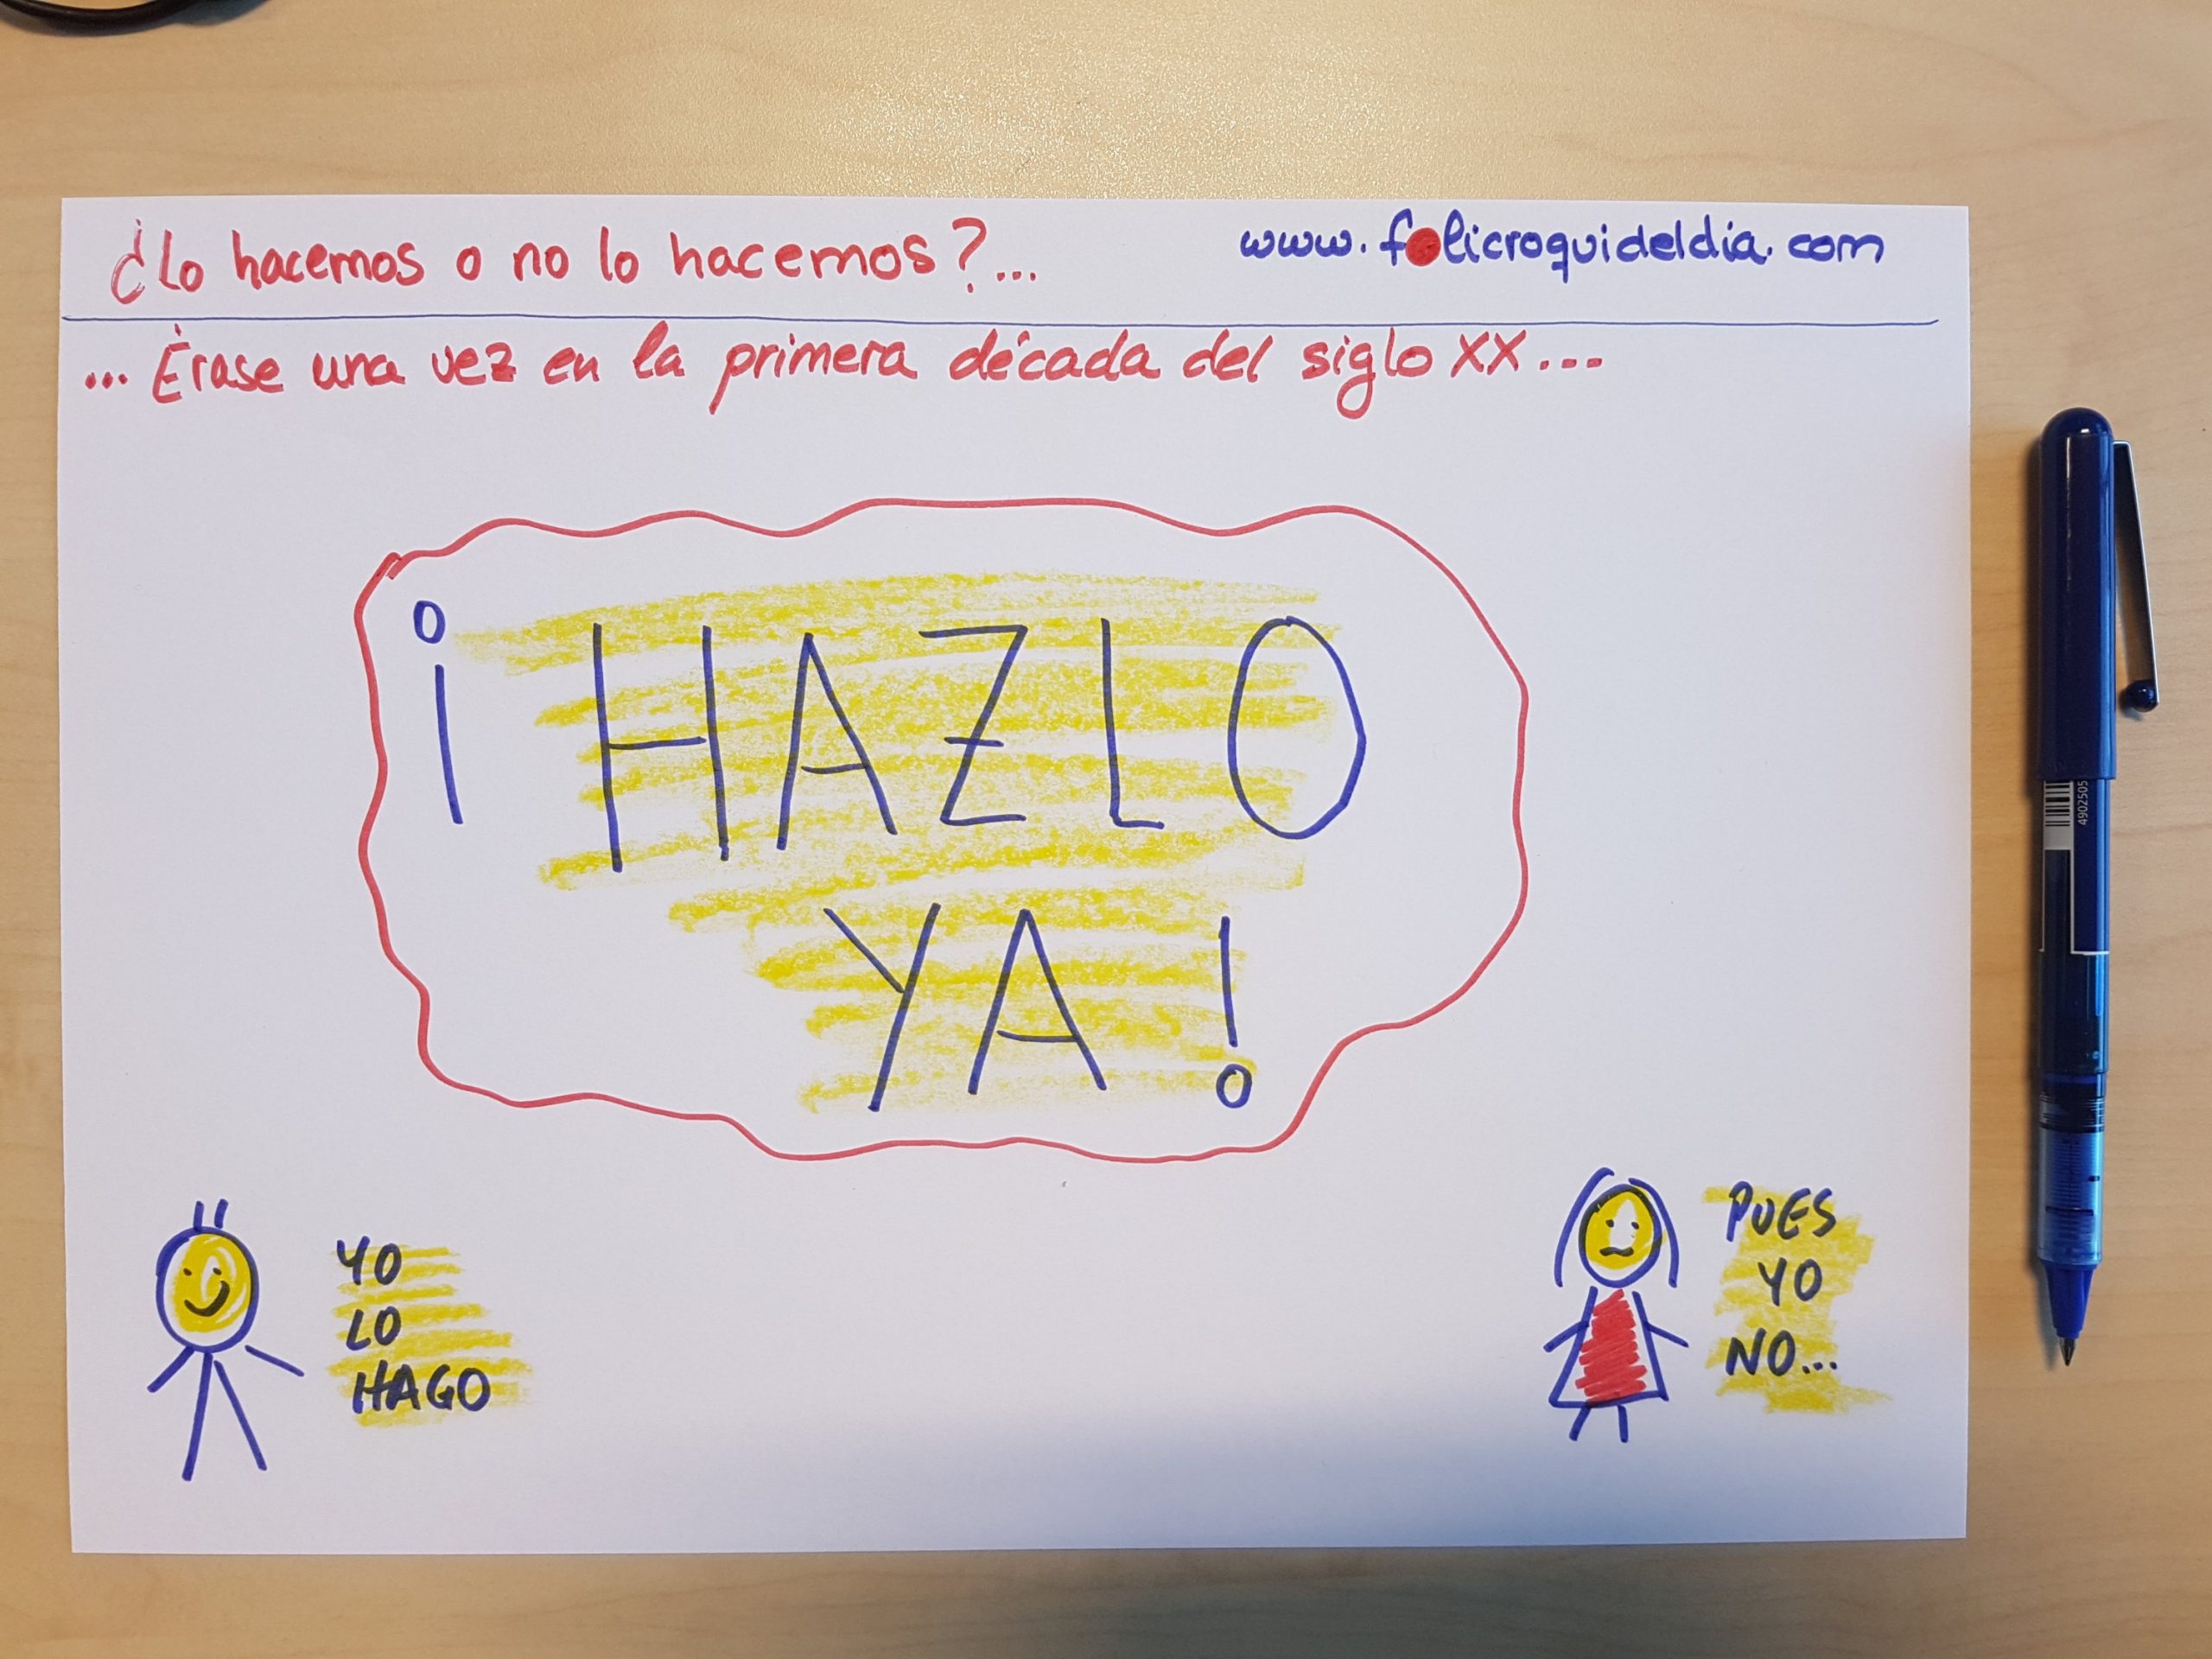 ¿Lo hacemos o no lo hacemos?...
www.folicroquideldia.com
... Érase una vez en la primera década del siglo XX...
¡HAZLO
YA!
YO
LO
HAGO
PUES
YO
NO...
4902505